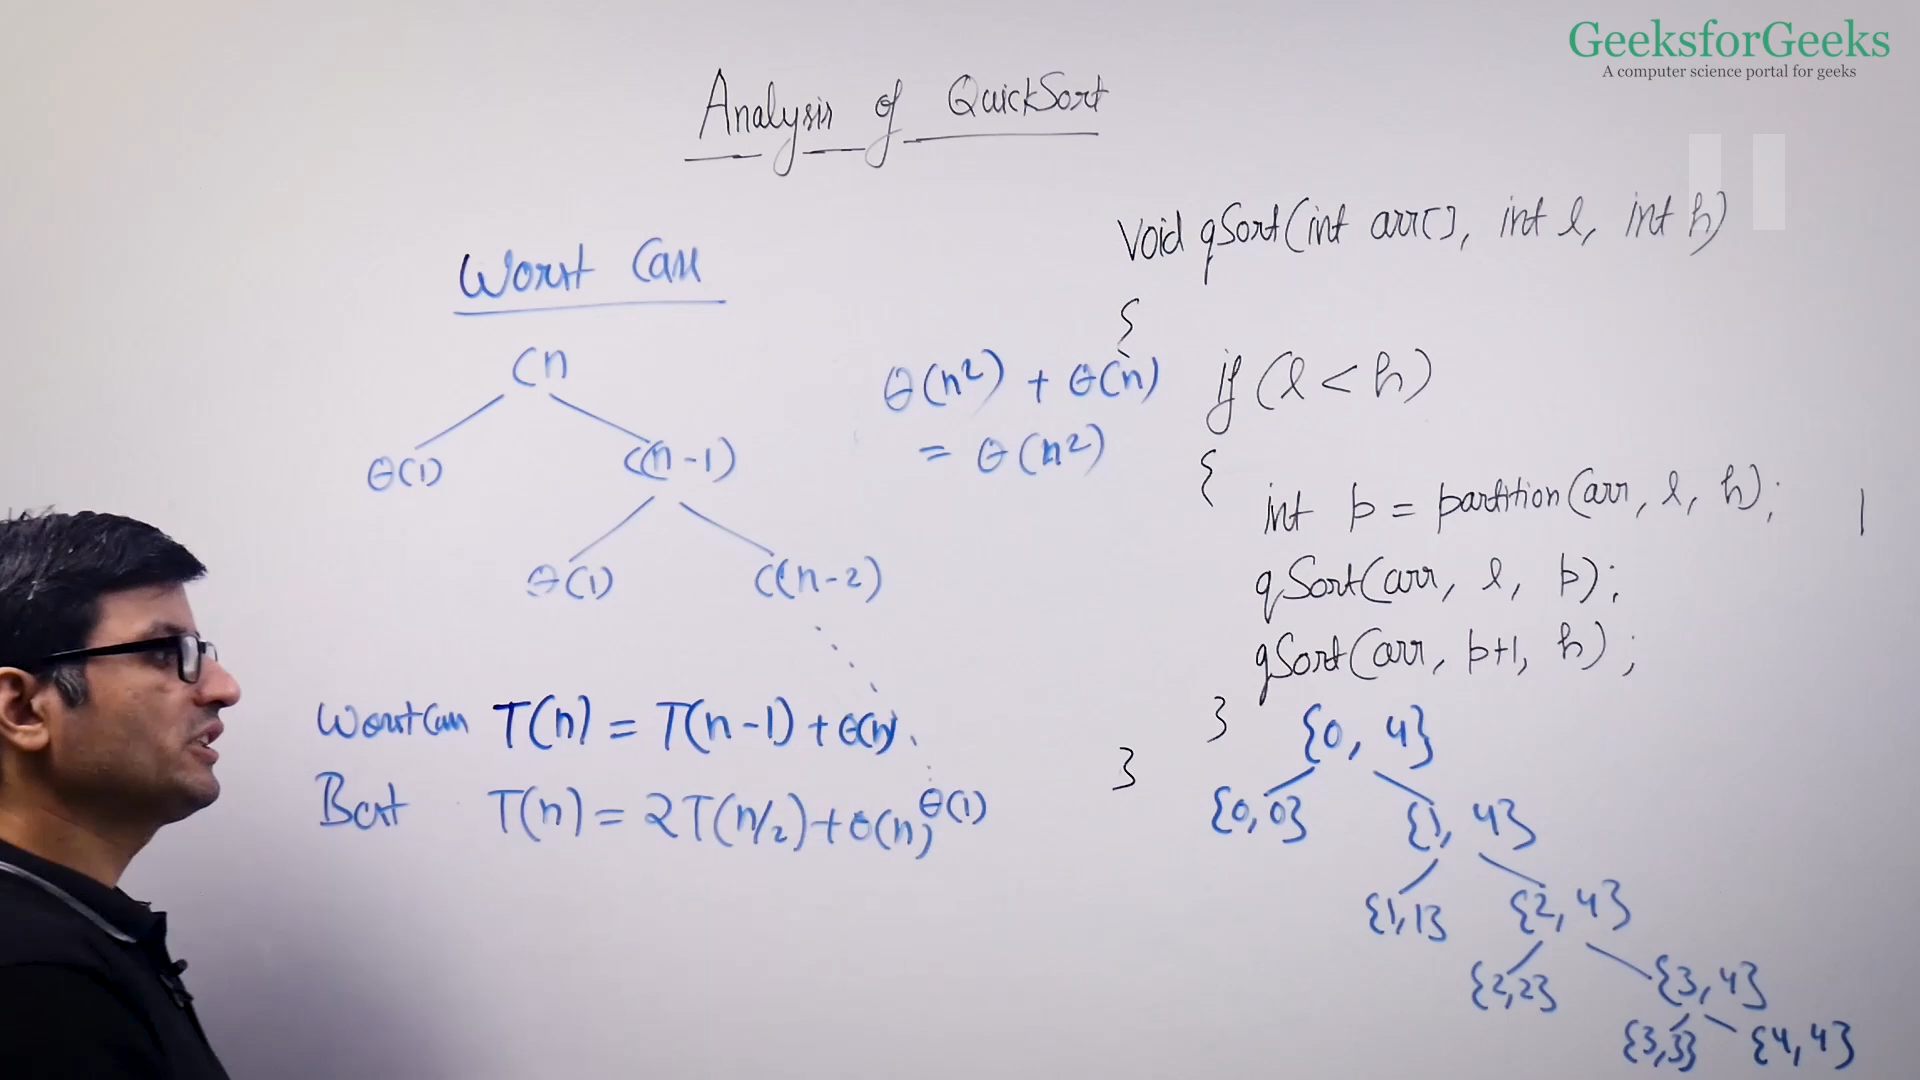 GeeksforGeeks
A computer science portal for geeks
Analysis of QuickSort
Worst Case
Cn
θ(1) C(n-1)
θ(1) C(n-2)
θ(1)
θ(n²) + θ(n)
= θ(n²)
Worst Case T(n) = T(n-1) + θ(n)
Best T(n) = 2T(n/2) + θ(n)
Void qSort(int arr[], int l, int h)
{
if (l < h)
{
int p = partition(arr, l, h);
qSort(arr, l, p);
qSort(arr, p+1, h);
}
}
{0, 4}
{0,0} {1, 4}
{1,1} {2, 4}
{2,2} {3, 4}
{3,3} {4,4}